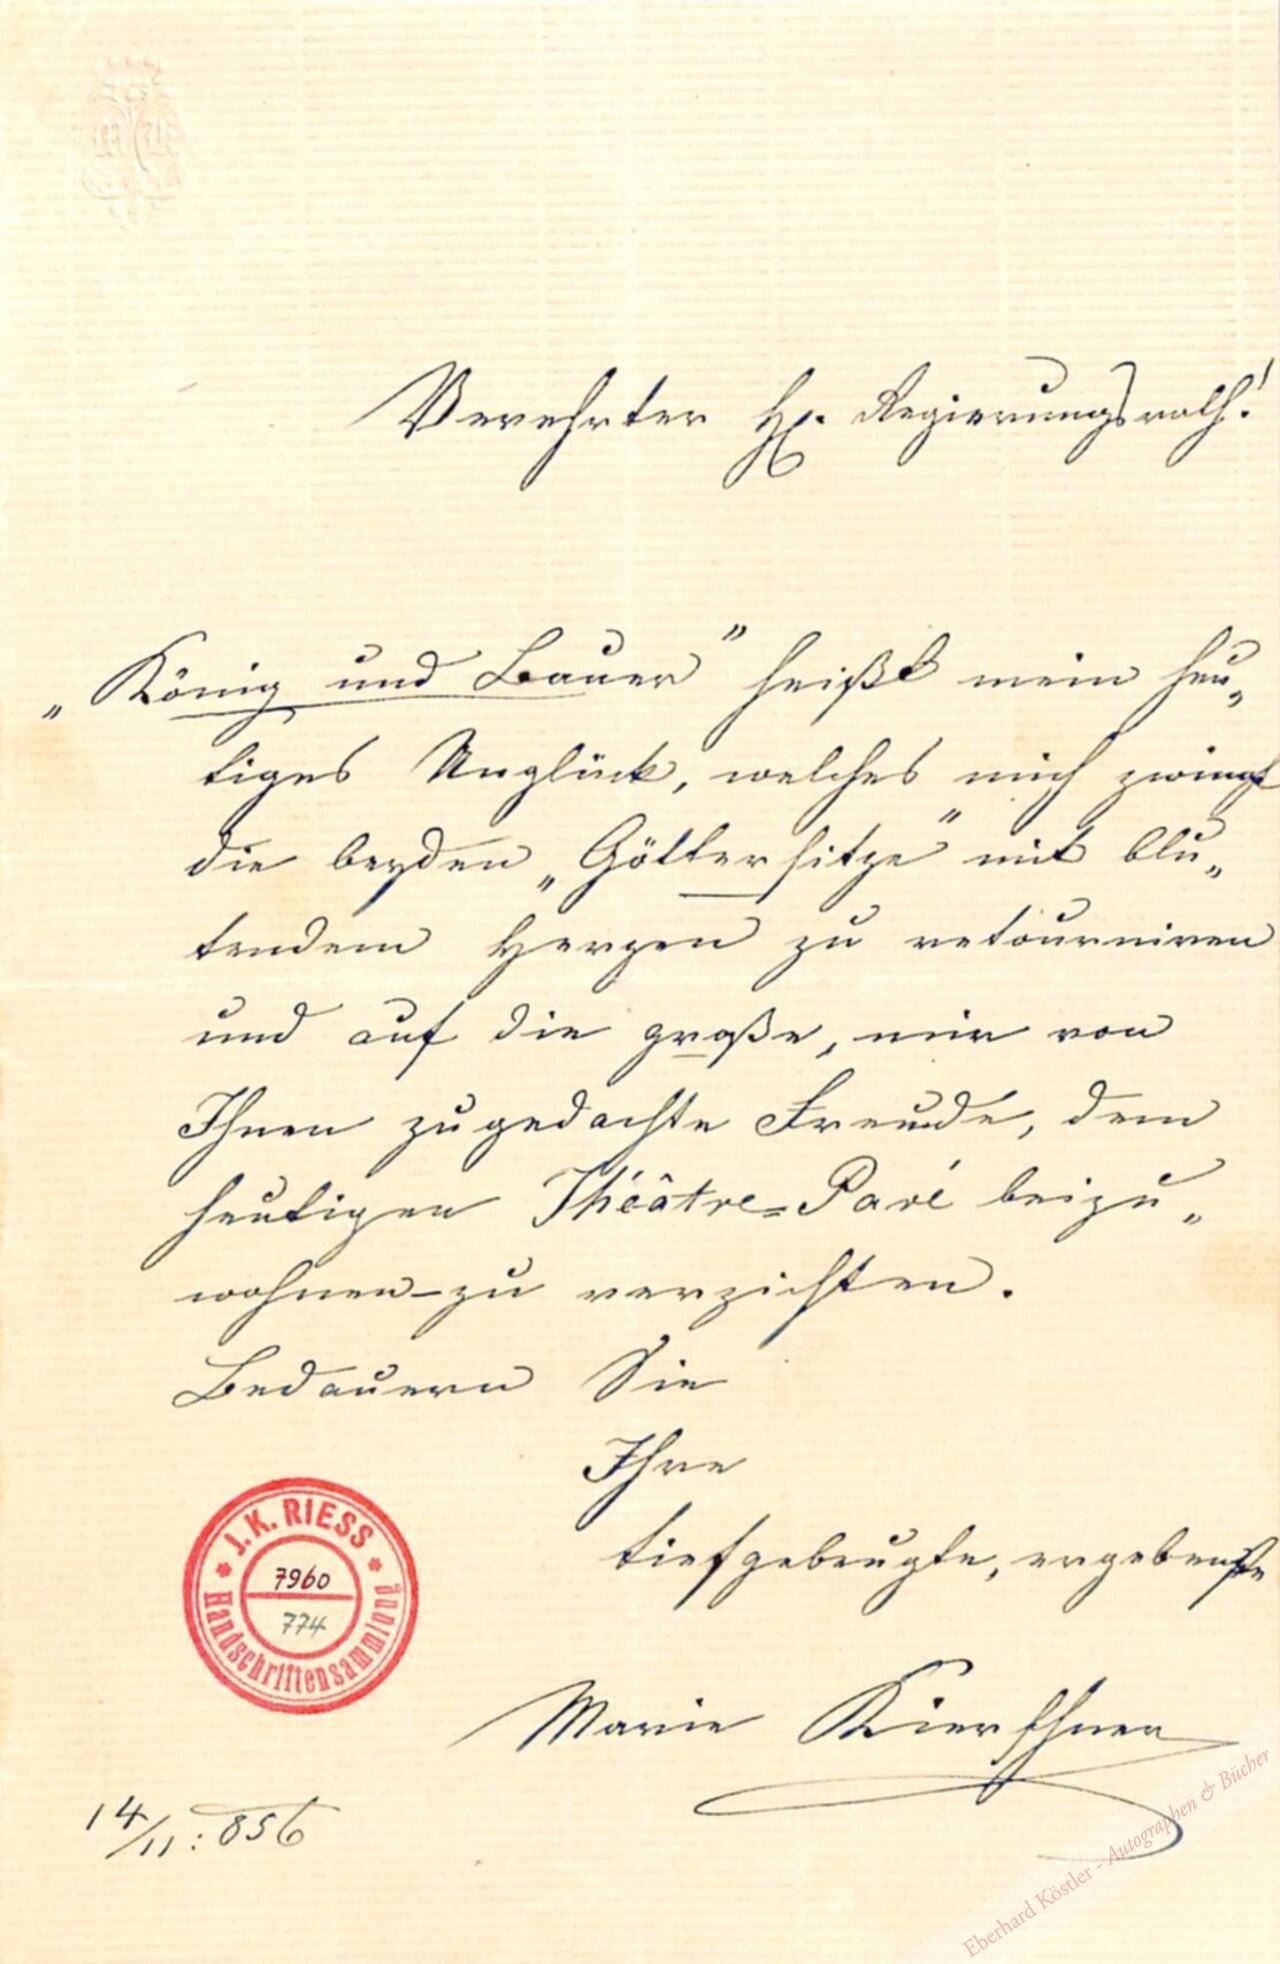 Verehrter H. Regierungsrath!
„König und Bauer" heißt mein heu„
tiges Unglück, welches mich zwingt
die beyden „Göttersitze" mit blu„
tendem Herzen zu retourniren
und auf die große, mir von
Ihnen zugedachte Freude, dem
heutigen Théâtre=Paré beizu„
wohnen – zu verzichten.
Bedauern Sie
Ihre
tiefgebeugte, ergebenste
J. K. RIESS
7960
774
Handschriftensammlung
Marie Kierschner
14/11: 856
Eberhard Köstler - Autographen & Bücher